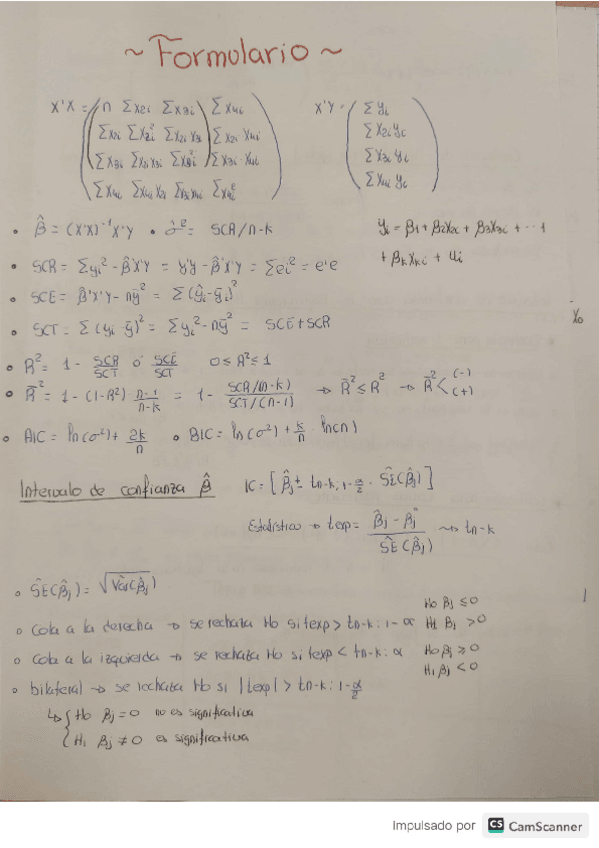 ~ Formulario ~
X'X = ( n Σx2i Σx3i Σx4i    X'Y = ( Σyi
Σx2i Σx2i² Σx2i x3i Σx2i x4i    Σx2i yi
Σx3i Σx2i x3i Σx3i² Σx3i x4i    Σx3i yi
Σx4i Σx4i x2i Σx3i x4i Σx4i² )    Σx4i yi )
• β̂ = (X'X)⁻¹X'Y • σ̂² = SCR/n-k    yi = β1 + β2X2i + β3X3i + ...
+ βkXki + ui
• SCR = Σyi² - β̂'X'Y = y'y - β̂'X'Y = Σei² = e'e
• SCE = β̂'X'Y - nȳ² = Σ(ŷi - ȳi)²
• SCT = Σ(yi - ȳ)² = Σyi² - nȳ² = SCE + SCR
X0
• R² = 1 - SCR/SCT ó SCE/SCT    0 ≤ R² ≤ 1
• R̄² = 1 - (1-R²) · n-1/n-k = 1 - SCR/(n-k)/SCT/(n-1) → R̄² ≤ R² → R̄² < (-) (+)
• AIC = ln(σ²) + 2k/n • BIC = ln(σ²) + k/n · ln(n)
Intervalo de confianza β̂    IC = [β̂j ± tn-k; 1-α/2 · ŜE(β̂j)]
Estadístico → texp = β̂j - βj*/ŜE(β̂j) ~> tn-k
• ŜE(β̂j) = √Var̂(β̂j)
• Cola a la derecha → se rechaza Ho si texp > tn-k: 1-α    Ho βj ≤ 0
H1 βj > 0
• Cola a la izquierda → se rechaza Ho si texp < tn-k: α    Ho βj ≥ 0
H1 βj < 0
• bilateral → se rechaza Ho si |texp| > tn-k: 1-α/2
↳ { Ho βj = 0 no es significativa
{ H1 βj ≠ 0 es significativa
Impulsado por CS CamScanner